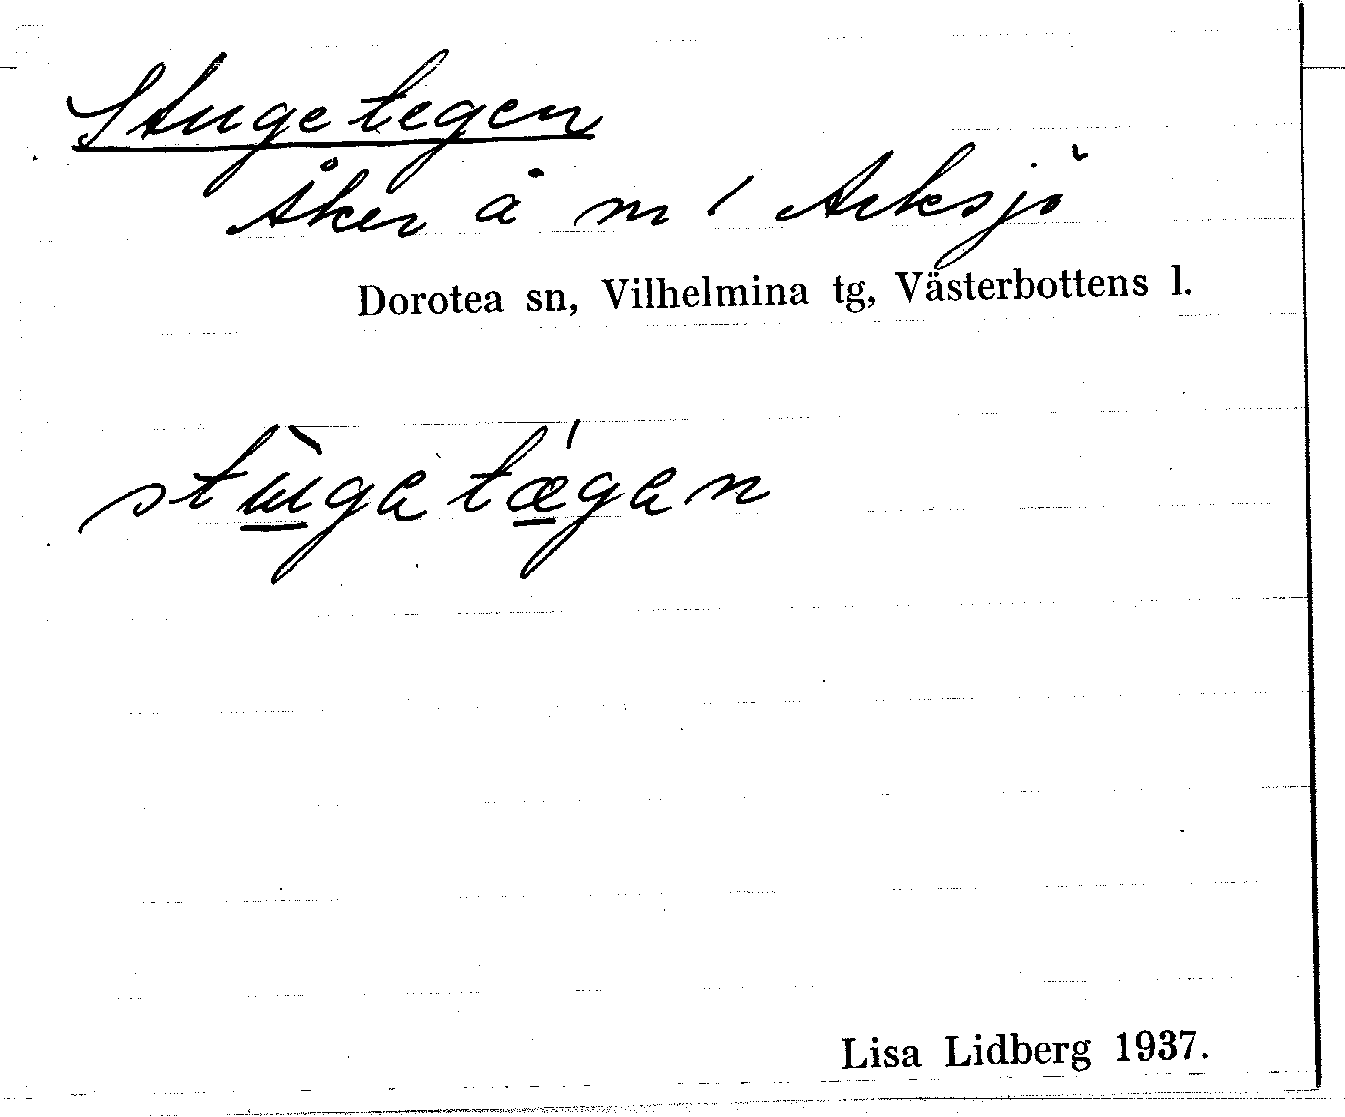 Stugetegen
Åker å nr 1 Arksjö
Dorotea sn, Vilhelmina tg, Västerbottens l.
stùga tǽgan
Lisa Lidberg 1937.